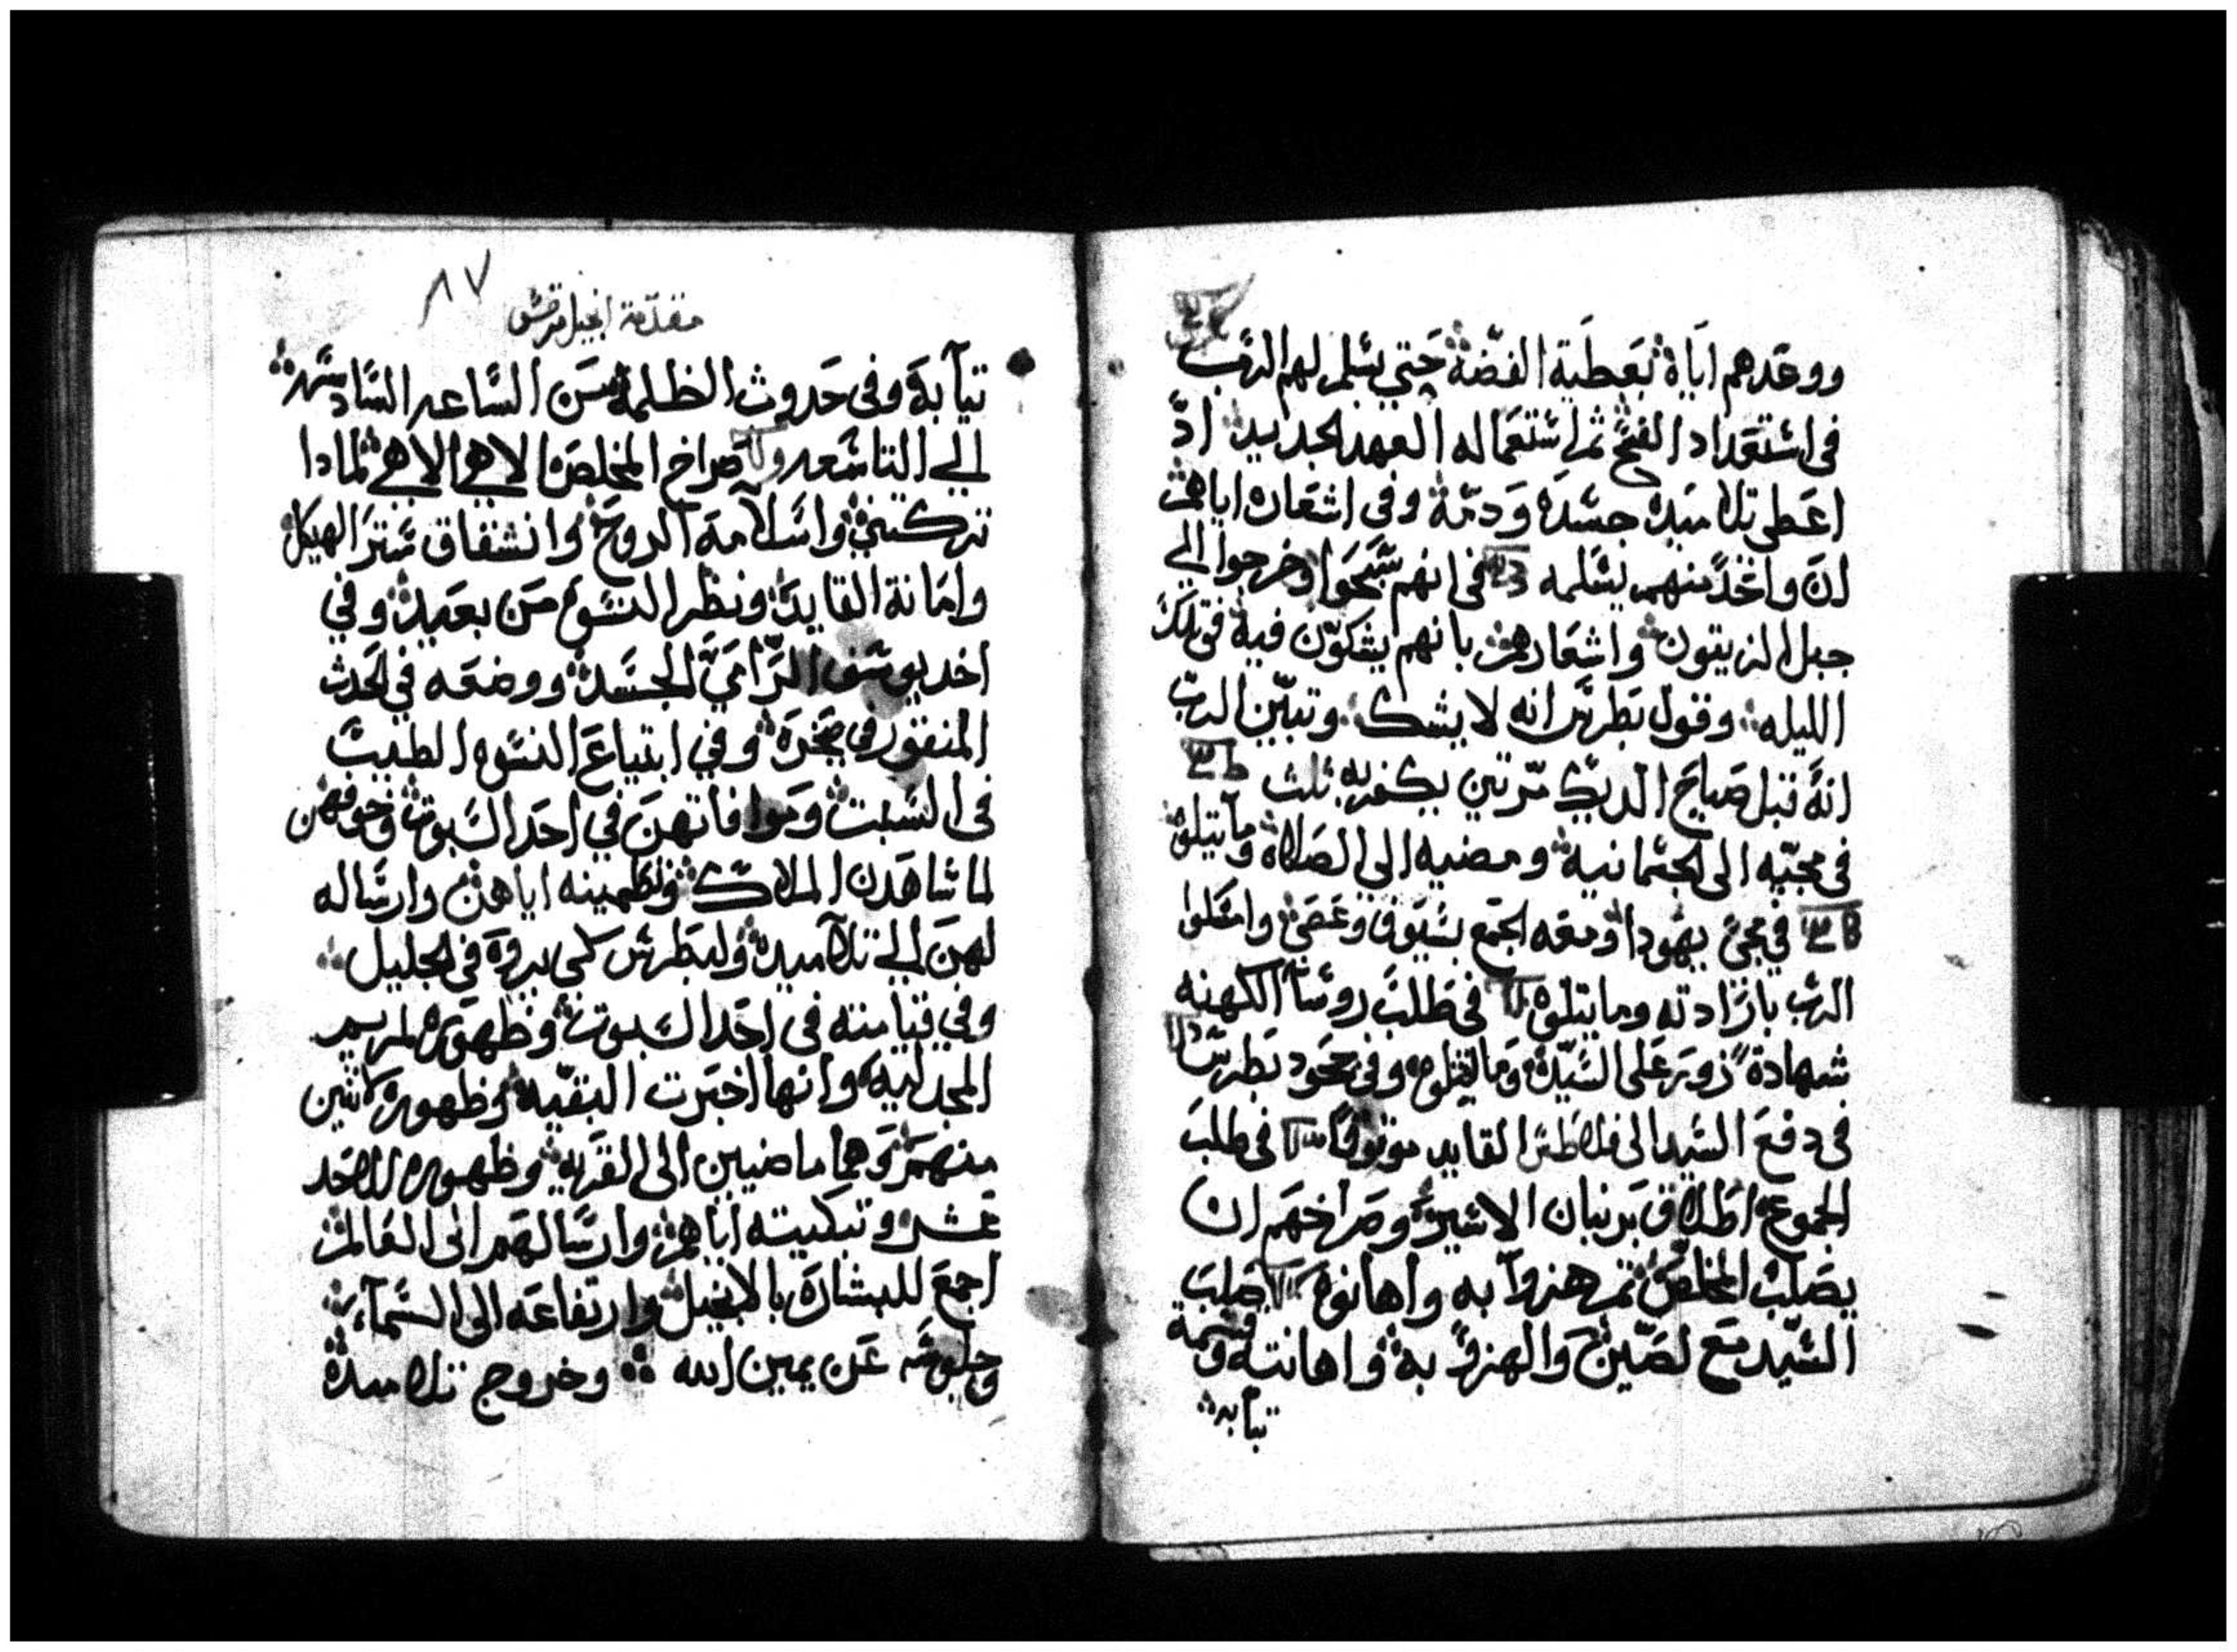 ووعدهم اياه بعطية الفضة حتي يسلم لهم الرب
في استعداد الفصح ثم استعماله العهد الجديد اذ
اعطي تلاميده جسده ودمه وفي اشعاره اياهم
ان واحدًا منهم يسلمه في انهم سبحوا وخرجوا الي
جبل الزيتون واشعارهم بانهم يشكون فيه في تلك
الليله وقول بطرس انه لا يشك وتبين الرب
انه قبل صياح الديك مرتين يكفر به ثلث
في مجيه الى الجتمانيه ومضيه الى الصلاه وما يتلوه
في مجئ يهودا ومعه الجمع بسيوف وعصي وامسكوا
الرب بارادته وما يتلوه في طلب روسآ الكهنه
شهادة زور على السيد وما يتلوه وفي جحود بطرس
في دفع السيد الى فلاطس القايد موثوقًا في طلب
الجموع اطلاق برنبان الاسير وصراخهم ان
يصلب المخلص ثم هزوآ به واهانوه صلب
السيد مع لصين والهزؤ به واهانته وقسمة
تيابه
مقدمة انجيل مرقس
٨٧
تيآبه وفي حدوث الظلمة من الساعه السادسه
الي التاسعه وصراخ المخلص الاهي الاهي لمادا
تركتني واسلامه الروح وانشقاق ستر الهيكل
وامانة القايد ونظر النسوه من بعيد وفي
اخد يوسف الرامي الجسد ووضعه في الحدث
المنقور في صخره وفي ابتياع النسوه الطيب
في السبت وموافاتهن في احد السبوت وخوفهن
لما شاهدن الملاك وتطمينه اياهن وارساله
لهن الي تلاميده ولبطرس لكي يروه في الجليل
وفي قيامته في احد السبوت وظهوره لمريم
المجدليه وانها اخبرت البقيه وظهوره لاثنين
منهم وهما ماضيين الى القريه وظهوره للاحد
عشر وتبكيته اياهم وارسالهم الى العالم
اجمع للبشاره بالانجيل وارتفاعه الى السمآء
وجلوسه عن يمين الله وخروج تلاميده